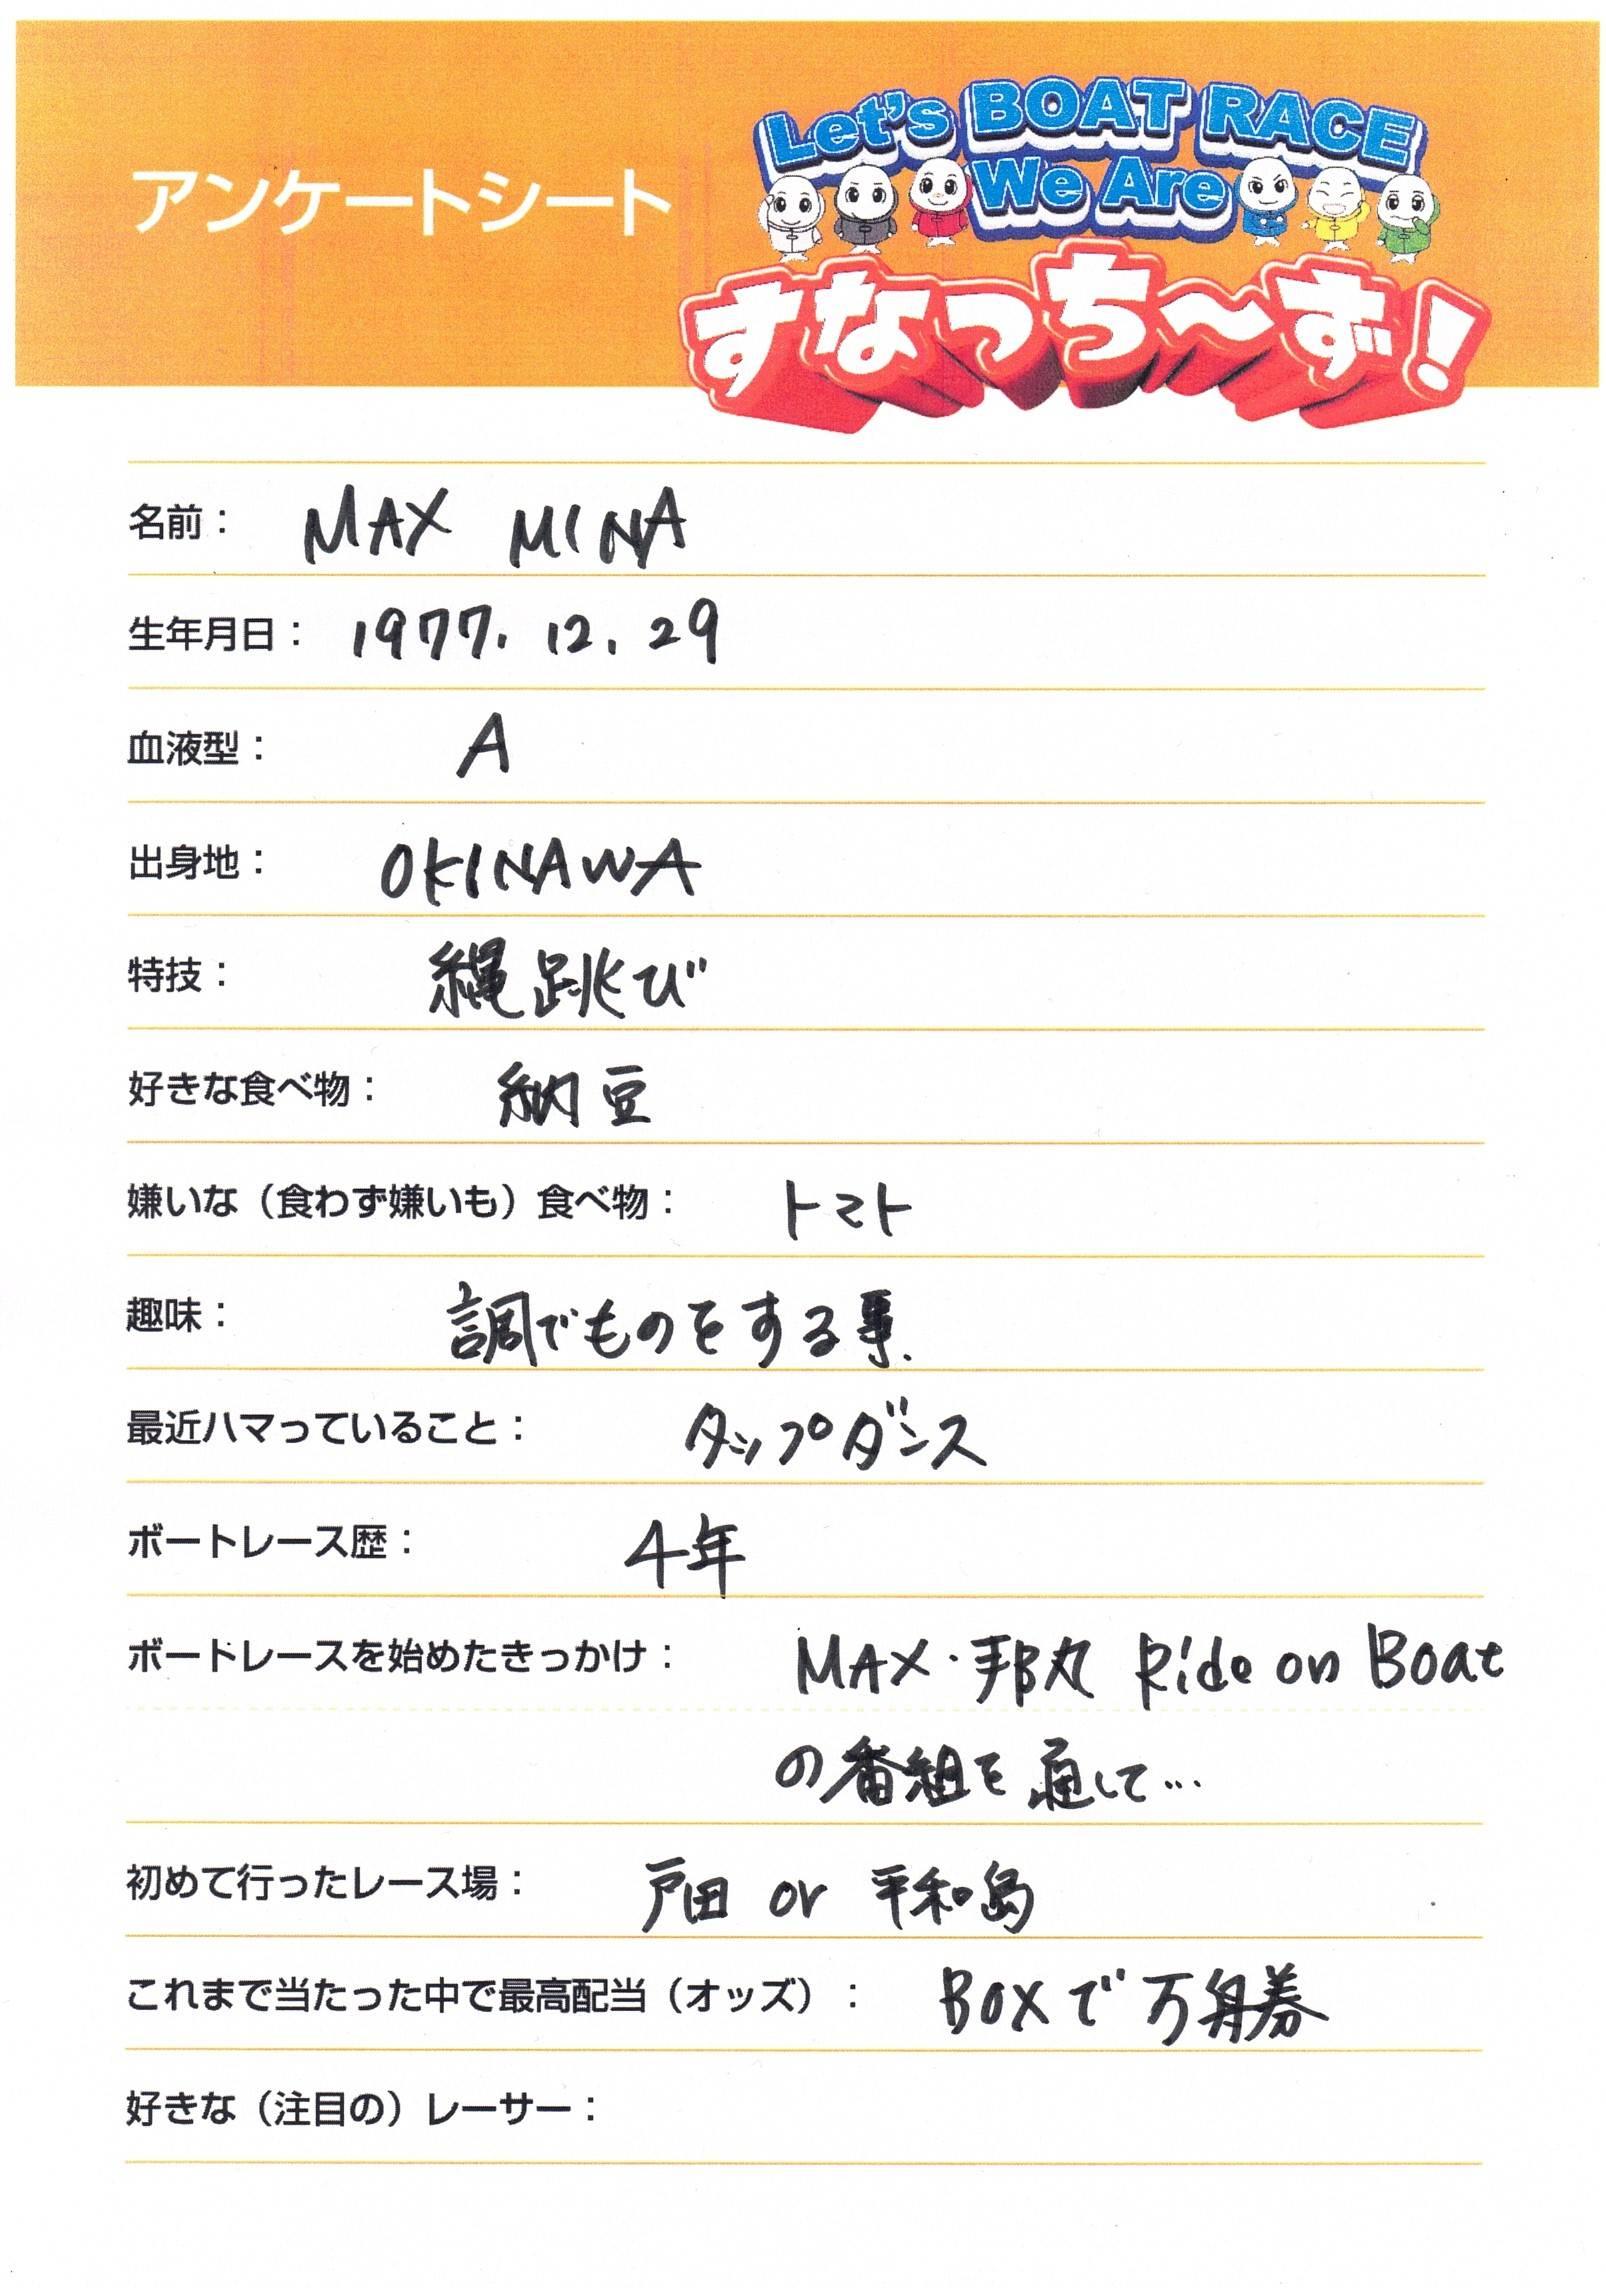 アンケートシート
Let's BOAT RACE
We Are
すなっち〜ず!
名前： MAX MINA
生年月日： 1977. 12. 29
血液型： A
出身地： OKINAWA
特技： 縄跳び
好きな食べ物： 納豆
嫌いな（食わず嫌いも）食べ物： トマト
趣味： 調でものをする事.
最近ハマっていること： タップダンス
ボートレース歴： 4年
ボートレースを始めたきっかけ： MAX・邦丸 Ride on Boat
の番組を通して…
初めて行ったレース場： 戸田 or 平和島
これまで当たった中で最高配当（オッズ）： BOXで万舟券
好きな（注目の）レーサー：